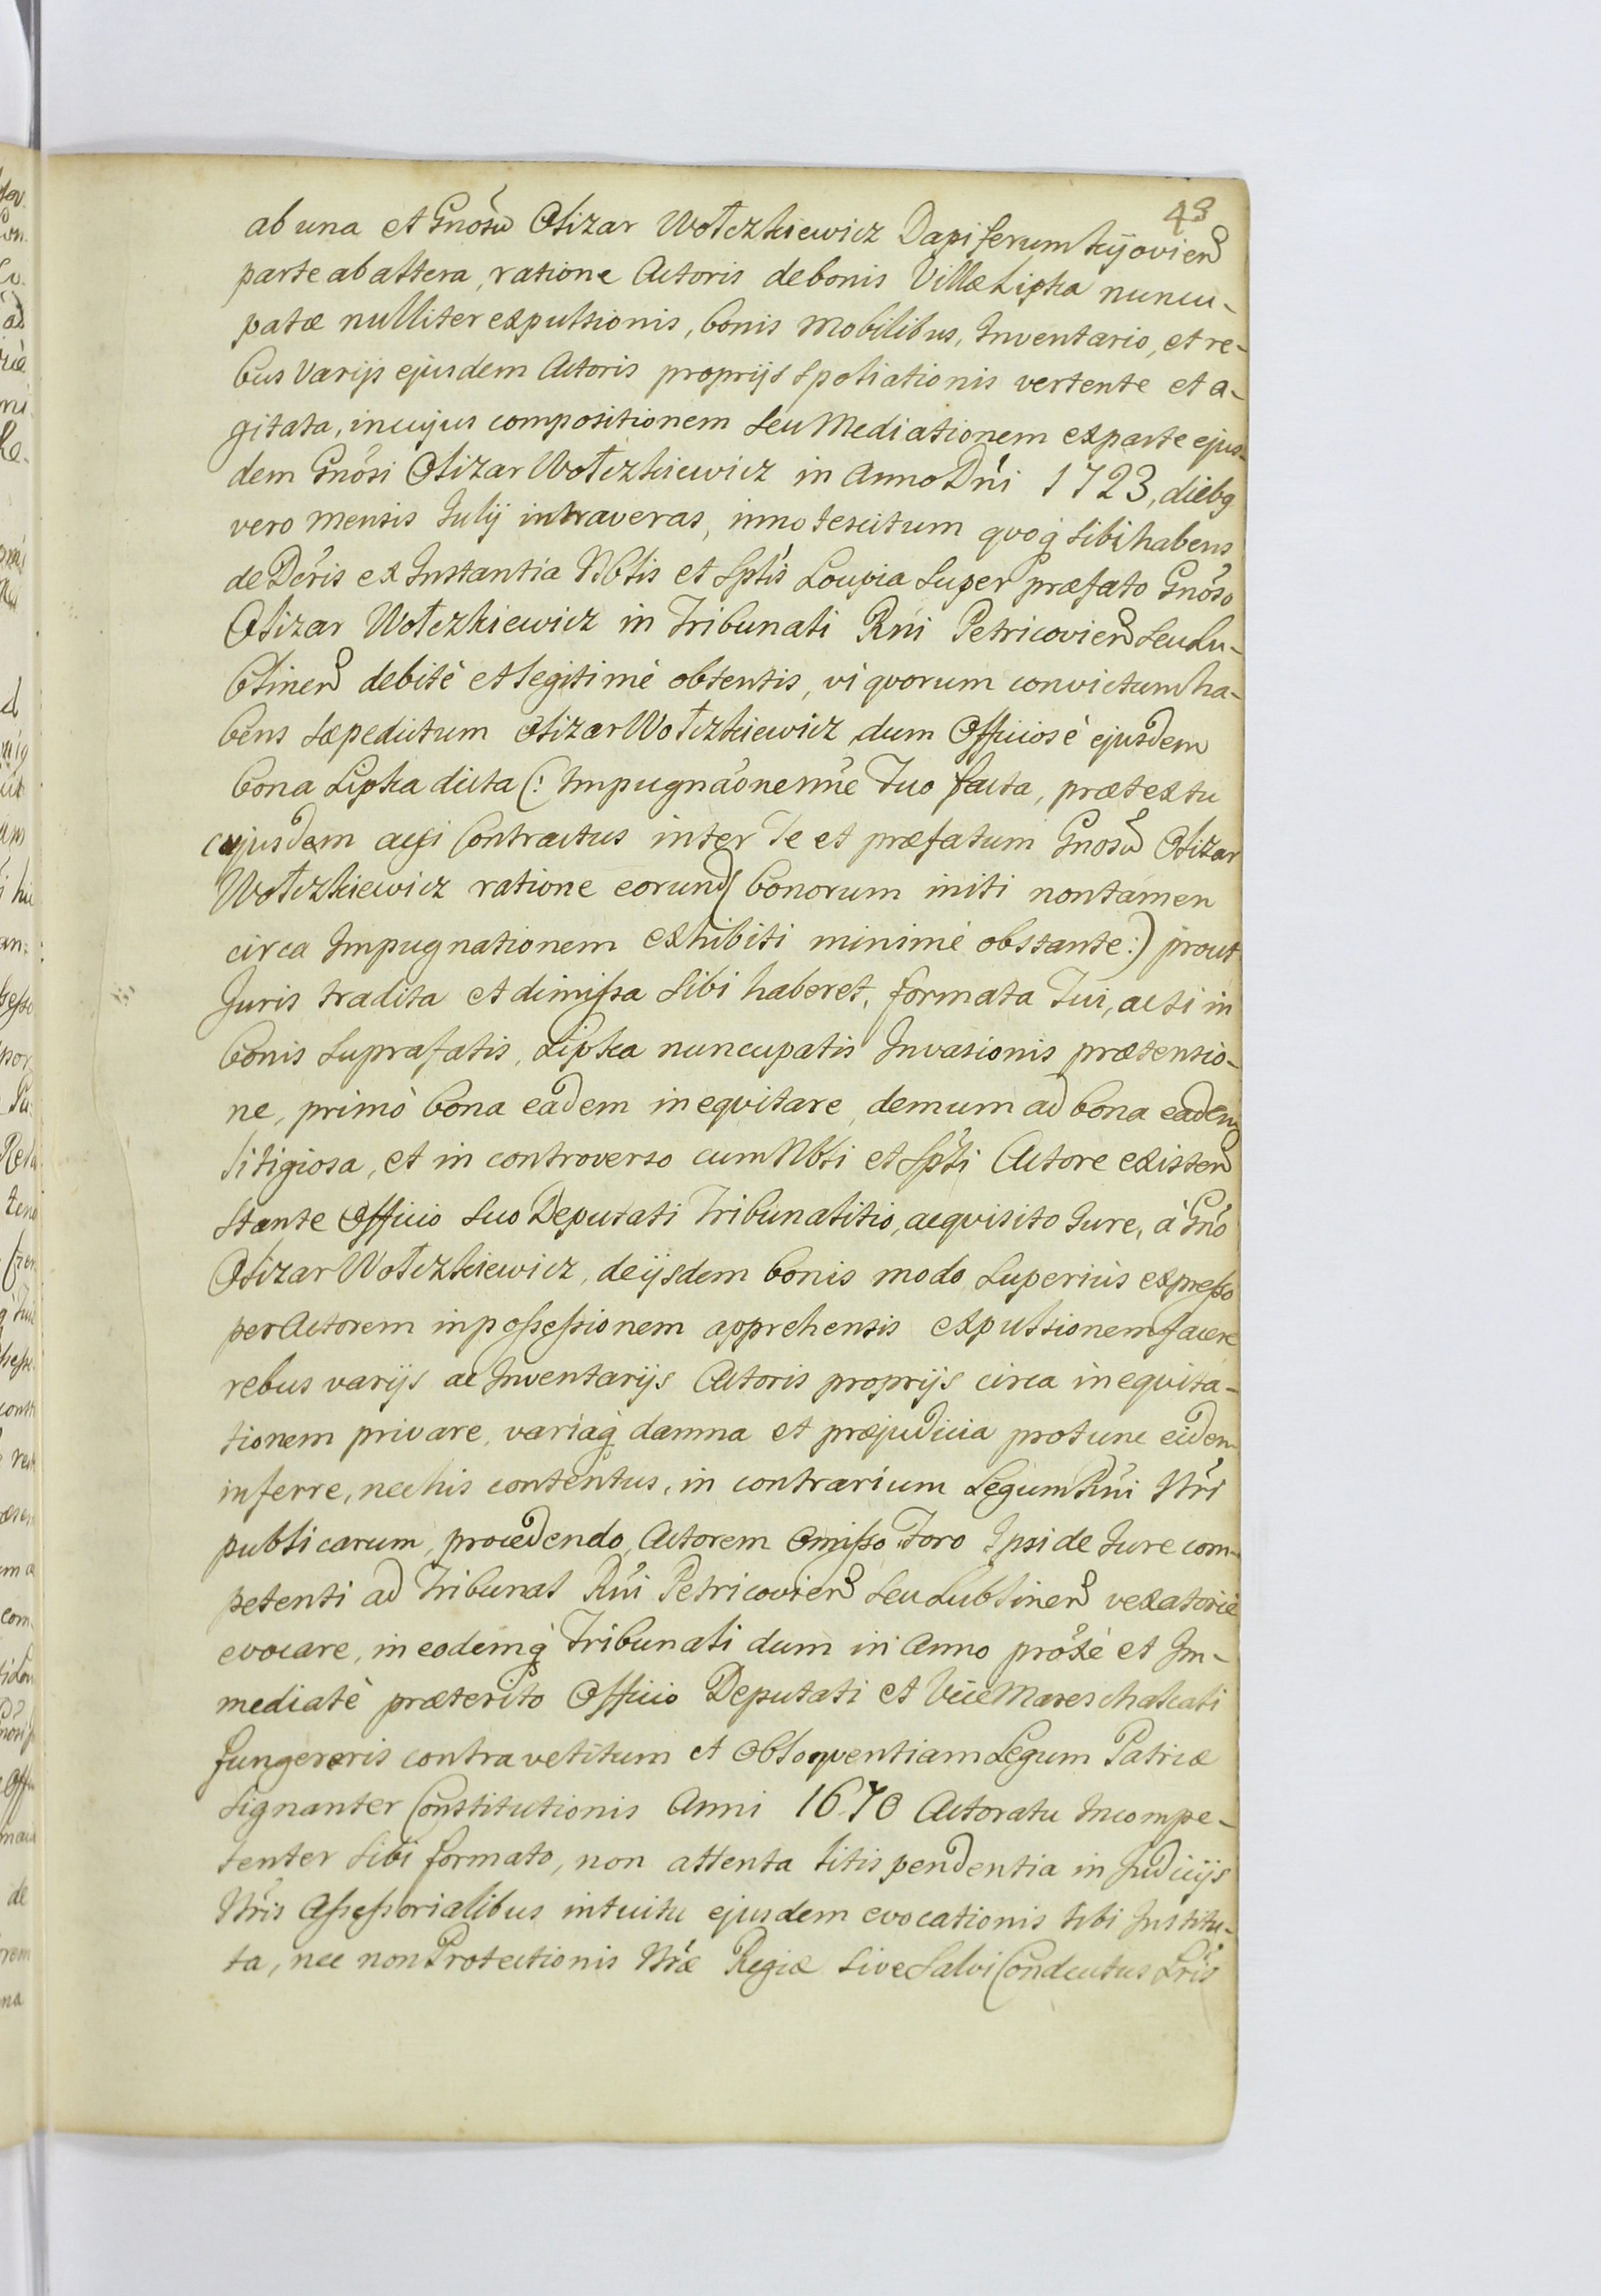 43
ab una et Gnosũ Olizar Wołczkiewicz Dapiferum Kijovien
parte ab altera, ratione Actoris de bonis Villæ Lipka nuncu-
patæ nulliter expulsionis, bonis Mobilibus, Inventario, et re-
bus varijs ejusdem Actoris proprijs spoliationis vertente et a-
gitata, in cujus compositionem seu Mediationem ex parte ejus-
dem Gnosi Olizar Wołczkiewicz in Anno Dni 1723, diebq
vero mensis Julij intraveras, innotescitum qvoq sibi habens
de Dcris ex Instantia Nblis et Splis Loupia super præfato Gnoso
Olizar Wołczkiewicz in Tribunali Rni Petricovien seu Lu-
blinen debitè et legitimè obtentis, vi qvorum convictum ha-
bens sæpedictum Olizar Wołczkiewicz dum Officiosè ejusdem
bona Lipka dicta (: Impugnaone nne Tuo facta, prætextu
cujusdem acsi Contractus inter Te et præfatum Gnosũ Olizar
Wołczkiewicz ratione eorund bonorum initi non tamen
circa Impugnationem exhibiti minimè obstante :) prout
Juris tradita et dimissa sibi haberet, formata Tui, acsi in
bonis suprafatis, Lipka nuncupatis Invasionis prætensio-
ne, primò bona eadem ineqvitare, demum ad bona eadem
litigiosa, et in controverso cum Nbli et Spli Actore existen
stante Officio suo Deputati Tribunalitio, acqvisito Jure, à Gno
Olizar Wołczkiewicz, de ijsdem bonis modo superiùs expresso
per Actorem in possessionem apprehensis expulsionem facere
rebus varijs ac Inventarijs Actoris proprijs circa ineqvita-
tionem privare, variaq damna et præjudicia protunc eidem
inferre, nec his contentus, in contrarium Legum Rni Nri
publicarum, procedendo, Actorem omisso Foro Ipsi de Jure com-
petenti ad Tribunal Rni Petricovien seu Lublinen vexatoriè
evocare, in eodemq Tribunali dum in Anno proxè et Im-
mediatè præterito Officio Deputati et Vice Mareschalcati
fungereris contra vetitum et obloqventiam Legum Patriæ
signanter Constitutionis Anni 1670 Actoratu Incompe-
tenter sibi formato, non attenta litis pendentia in Judicijs
Nris Assessorialibus intuitu ejusdem evocationis tibi Institu-
ta, nec non Protectionis Nræ Regiæ sive Salvi Conductus Lris